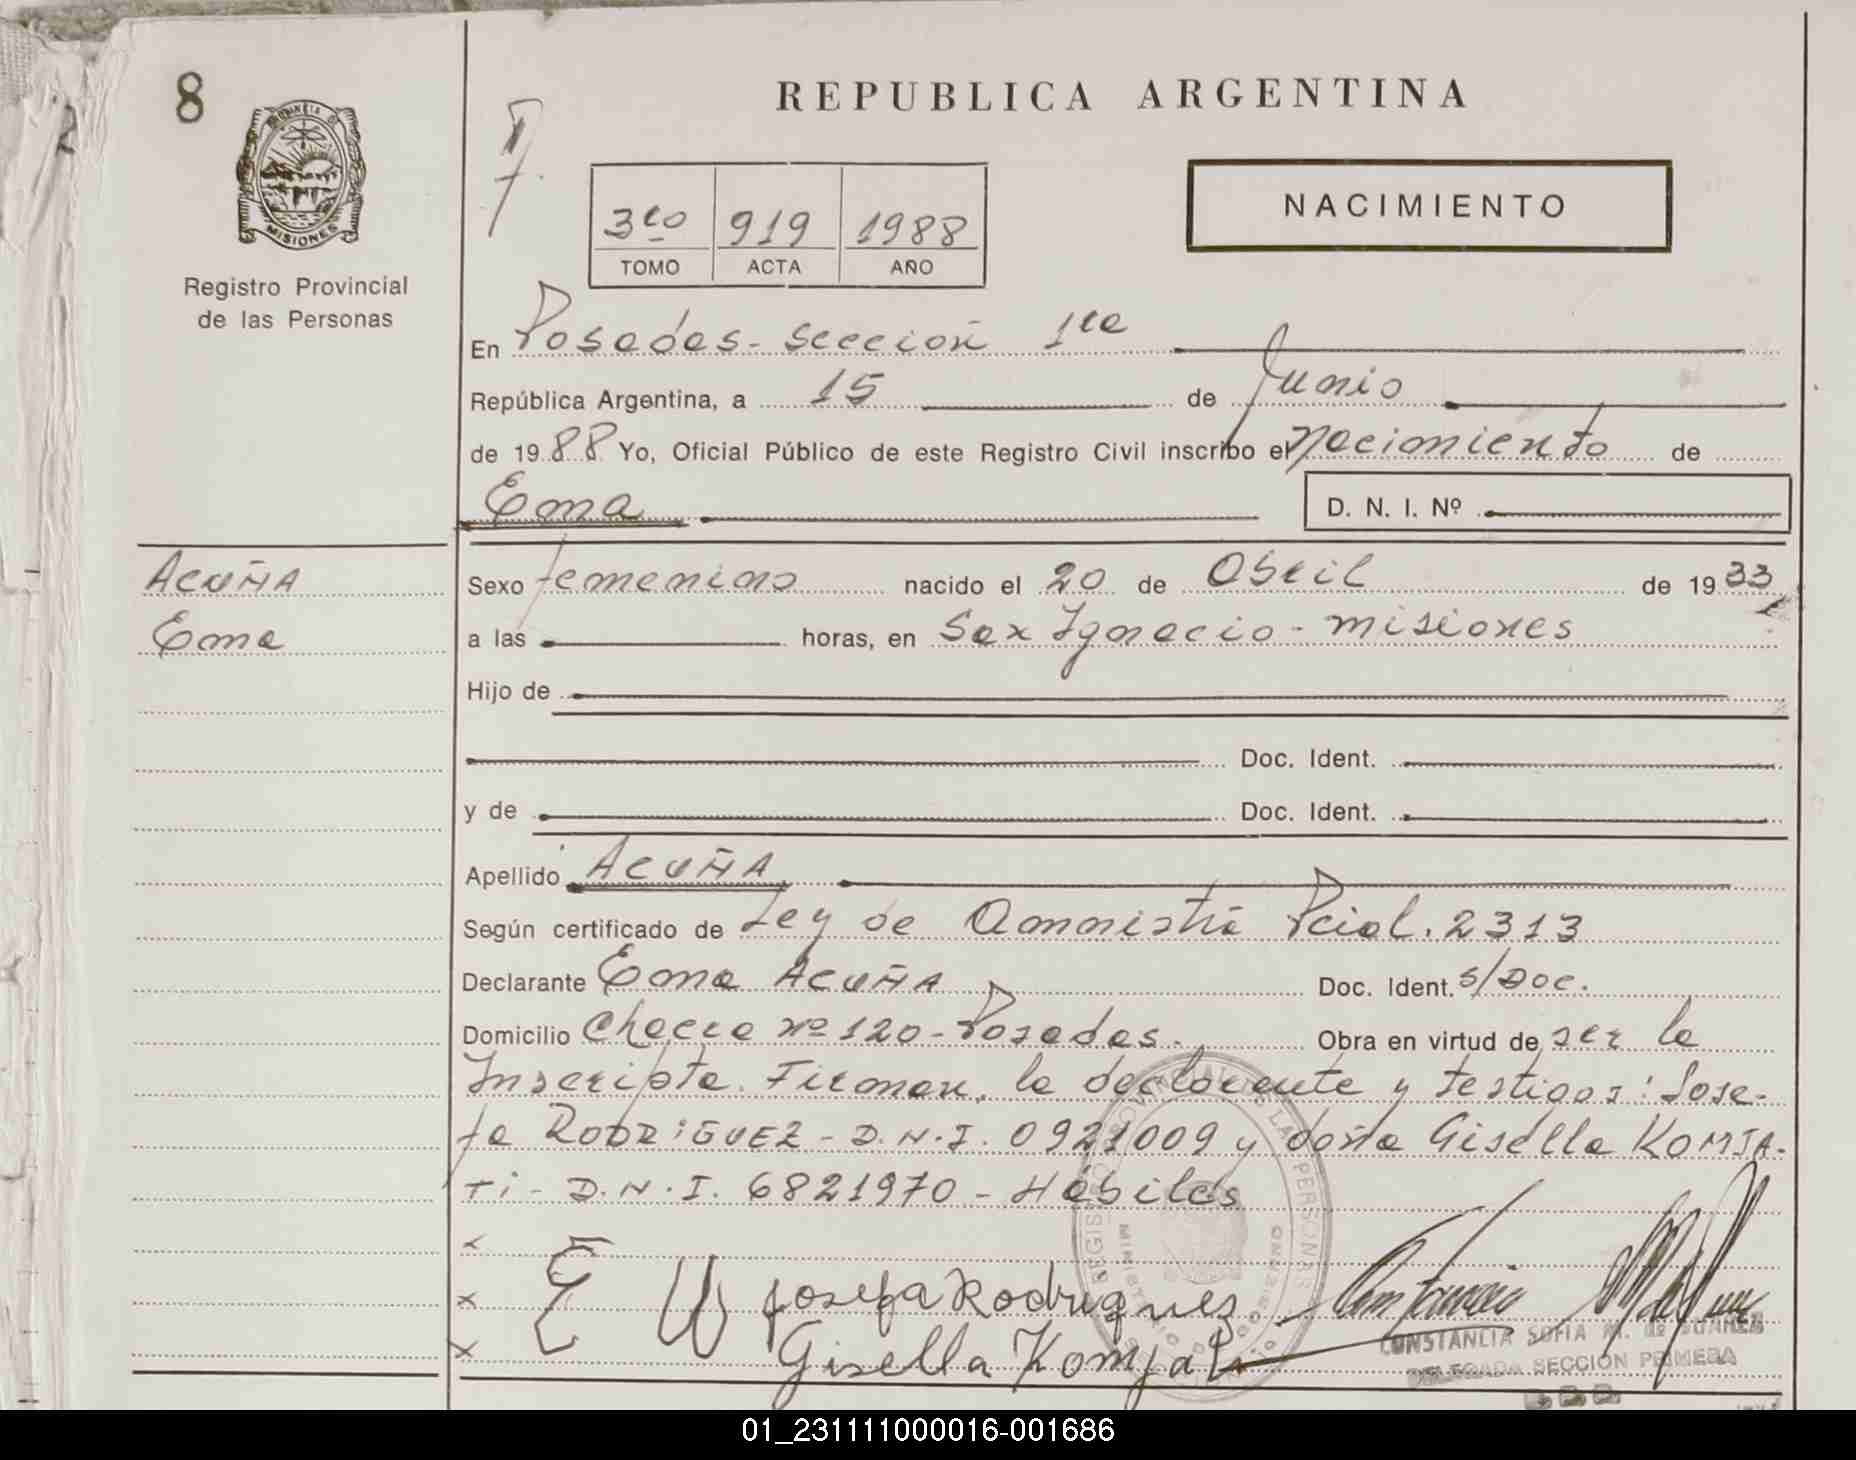 8
REPUBLICA ARGENTINA
PROVINCIA D
MISIONES
Registro Provincial
de las Personas
3ro 919 1988
TOMO ACTA AÑO
NACIMIENTO
En Posadas - Sección 1ra
República Argentina, a 15 de Junio
de 1988 Yo, Oficial Público de este Registro Civil inscribo el nacimiento de
Ema D. N. I. Nº
ACUÑA
Ema
Sexo femenino nacido el 20 de Abril de 1933
a las horas, en San Ignacio - Misiones
Hijo de
Doc. Ident.
y de Doc. Ident.
Apellido ACUÑA
Según certificado de Ley de Amnistía Pcial. 2313
Declarante Ema ACUÑA Doc. Ident. S/Doc.
Domicilio Chacra Nº 120 - Posadas. Obra en virtud de ser la
Inscripta. Firman, la declarante y testigos: Jose-
fa RODRiGUEZ - D.N.I. 0921009 y doña Gisella KOMJA-
Ti - D.N.I. 6821970 - Hábiles
x
x E Josefa Rodriguez
x Gisella Komjati
CONSTANCIA SOFIA M. de SUAREZ
DELEGADA SECCION PRIMERA
01_231111000016-001686